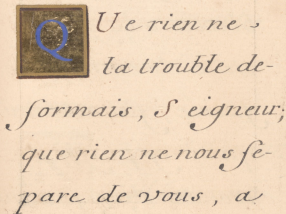 QUe rien ne
la trouble de-
sormais, Seigneur;
que rien ne nous se-
pare de vous, a